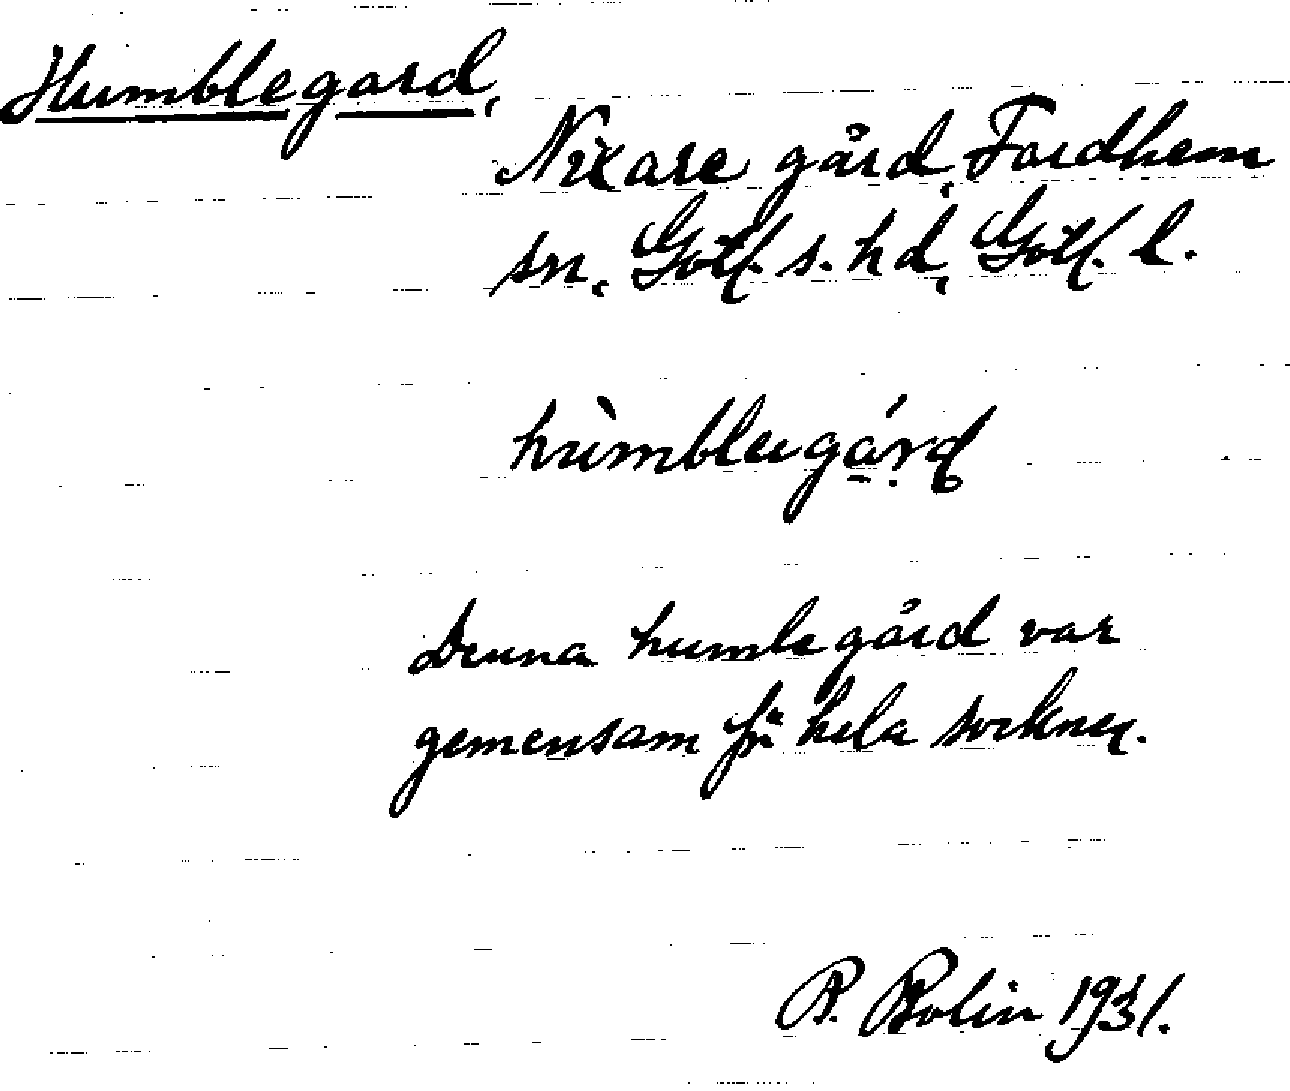 Humblegard,
Nixare gård, Fardhem
sn, Gotl. s. hd, Gotl. l.
hùmblεigárd
Denna humlegård var
gemensam för hela socknen.
P. Bolin 1931.